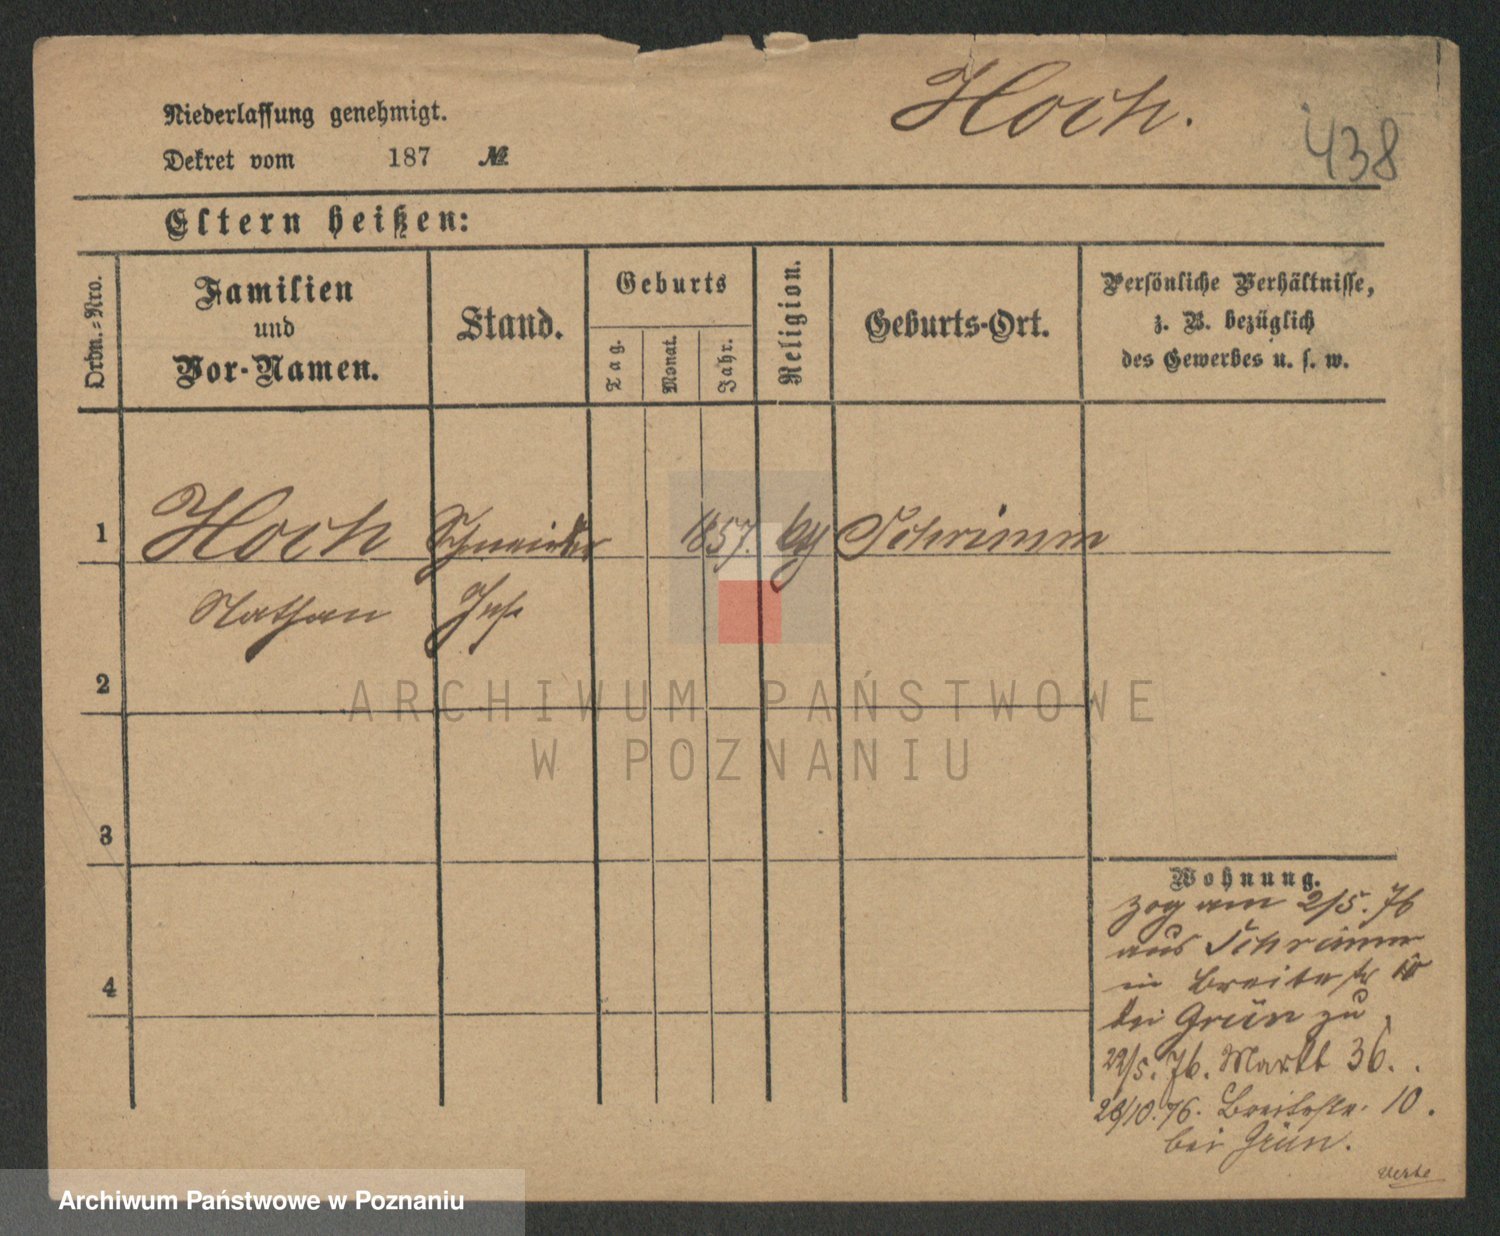 Hoch.
438
Niederlassung genehmigt.
Dekret vom 187 №
Eltern heißen:
Ordn.=Nro.
Familien
und
Vor-Namen.
Stand.
Geburts
Tag.
Monat.
Jahr.
Religion.
Geburts-Ort.
Persönliche Verhältnisse,
z. B. bezüglich
des Gewerbes u. s. w.
1 Hoch Schneider 1857. Schrimm
Nathan
2
ARCHIWUM PAŃSTWOWE
W POZNANIU
3
4
Wohnung.
zog am 2/5. 76
aus Schrimm
in Breitestr 10
bei Grün zu
22/5. 76. Markt 36.
28/10. 76. Breitestr. 10.
bei Grün.
Archiwum Państwowe w Poznaniu